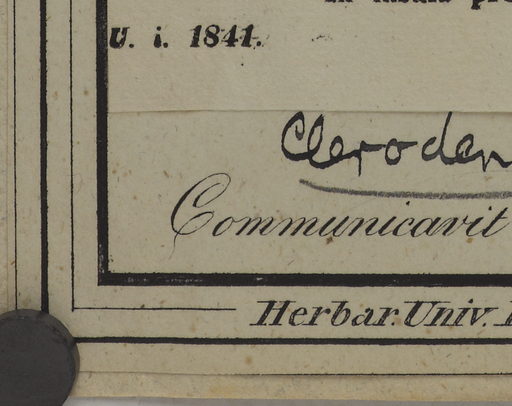 U. i. 1841.
Cleroden
Communicavit
Herbar. Univ.